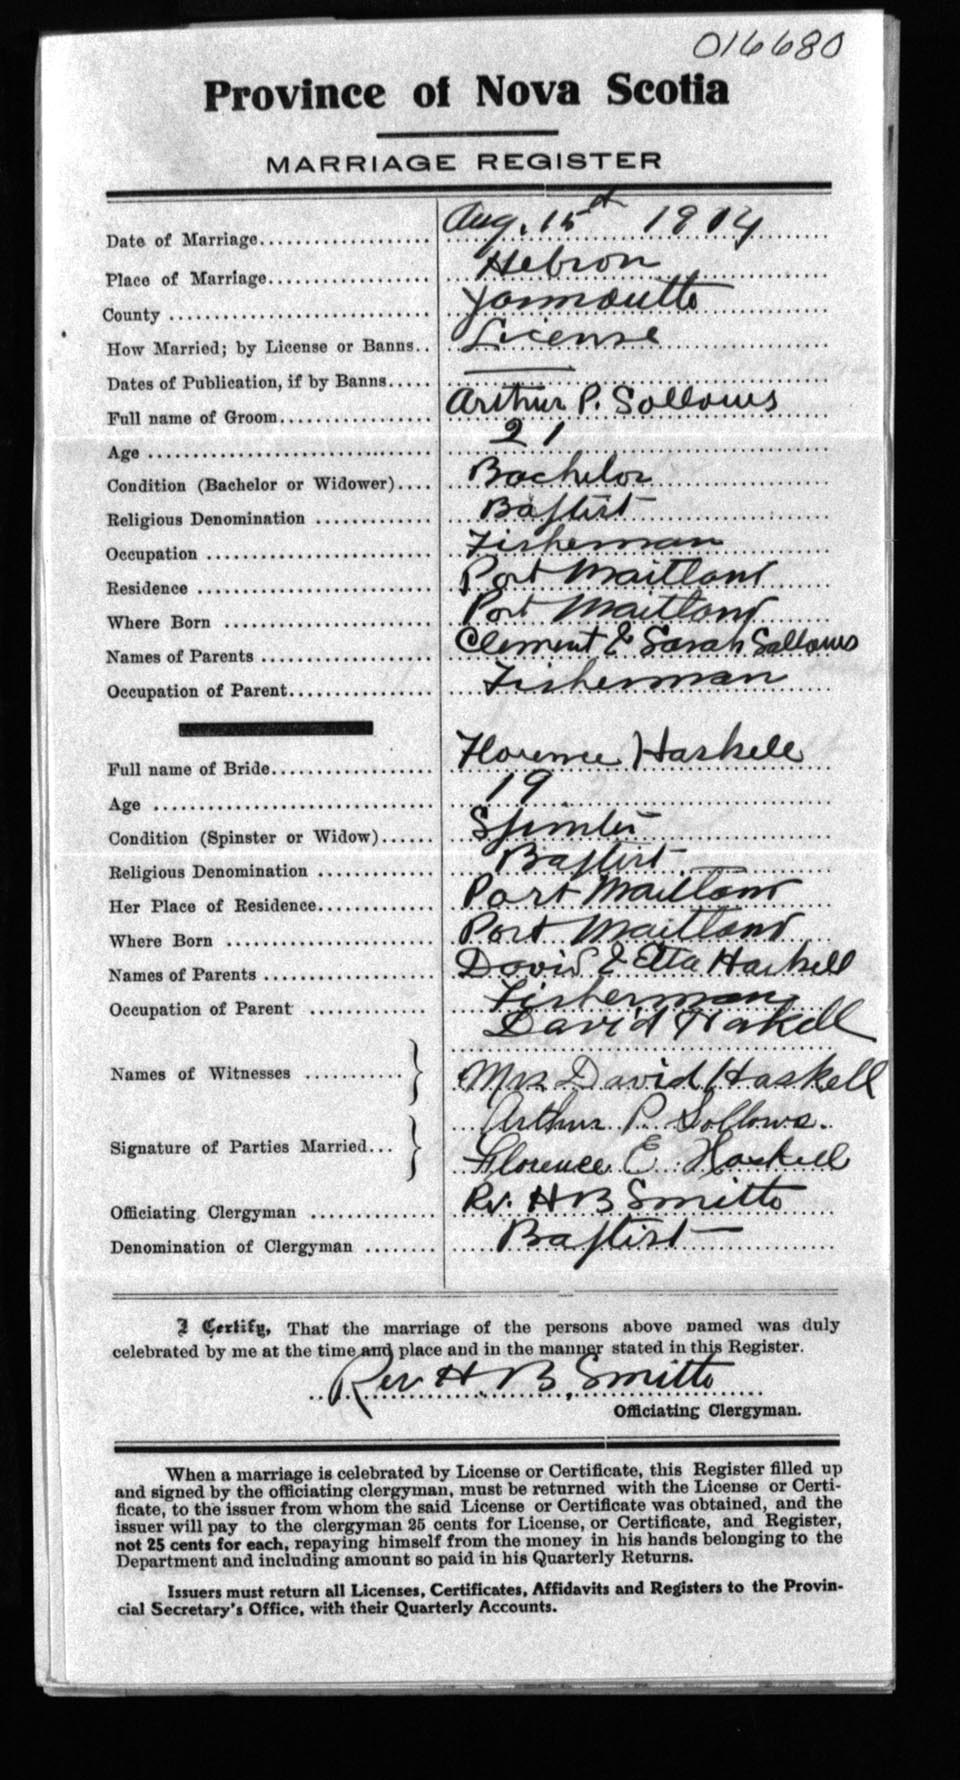 016680
Province of Nova Scotia
MARRIAGE REGISTER
Date of Marriage................... Aug. 15th 1914
Place of Marriage.................. Hebron
County ............................. Yarmouth
How Married; by License or Banns.. License
Dates of Publication, if by Banns..... ———
Full name of Groom................ Arthur P. Sollows
Age ............................... 21
Condition (Bachelor or Widower).... Bachelor
Religious Denomination ............. Baptist
Occupation ......................... Fisherman
Residence .......................... Port Maitland
Where Born ........................ Port Maitland
Names of Parents ................... Clement & Sarah Sollows
Occupation of Parent................ Fisherman
Full name of Bride.................. Florence Haskell
Age ................................ 19
Condition (Spinster or Widow)...... Spinster
Religious Denomination ............. Baptist
Her Place of Residence............. Port Maitland
Where Born ........................ Port Maitland
Names of Parents ................... David & Etta Haskell
Occupation of Parent ............. Fisherman
David Haskell
Names of Witnesses ........... } Mrs David Haskell
Arthur P. Sollows.
Signature of Parties Married... } Florence E Haskell
Officiating Clergyman .............. Rev. H B Smith
Denomination of Clergyman ........ Baptist
I Certify, That the marriage of the persons above named was duly
celebrated by me at the time and place and in the manner stated in this Register.
Rev H. B. Smith
Officiating Clergyman.
When a marriage is celebrated by License or Certificate, this Register filled up
and signed by the officiating clergyman, must be returned with the License or Certi-
ficate, to the issuer from whom the said License or Certificate was obtained, and the
issuer will pay to the clergyman 25 cents for License, or Certificate, and Register,
not 25 cents for each, repaying himself from the money in his hands belonging to the
Department and including amount so paid in his Quarterly Returns.
Issuers must return all Licenses, Certificates, Affidavits and Registers to the Provin-
cial Secretary's Office, with their Quarterly Accounts.